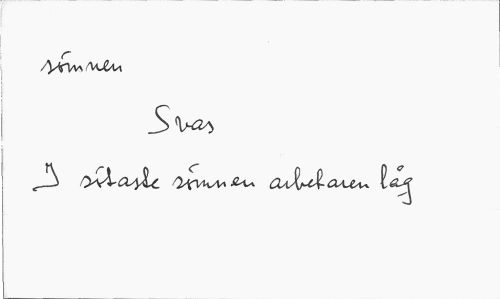 sömnen
Svas
I sötaste sömnen arbetaren låg